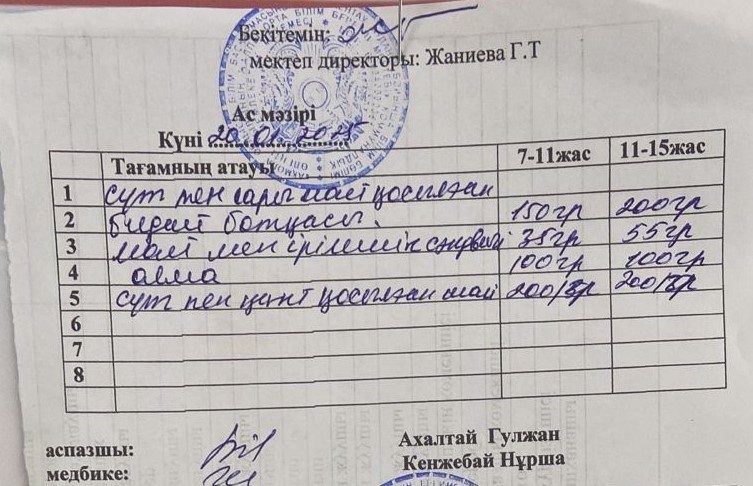 Бекітемін:
мектеп директоры: Жаниева Г.Т
Ас мәзірі
Күні 20.01.2025
Тағамның атауы 7-11жас 11-15жас
1 сүт пен сары май қосылған
2 бидай ботқасы. 150гр 200гр
3 май мен ірімшік сэндвичі 35гр 55гр
4 алма 100гр 100гр
5 сүт пен қант қосылған шай 200/8гр 200/8гр
6
7
8
аспазшы: Ахалтай Гулжан
медбике: Кенжебай Нұрша